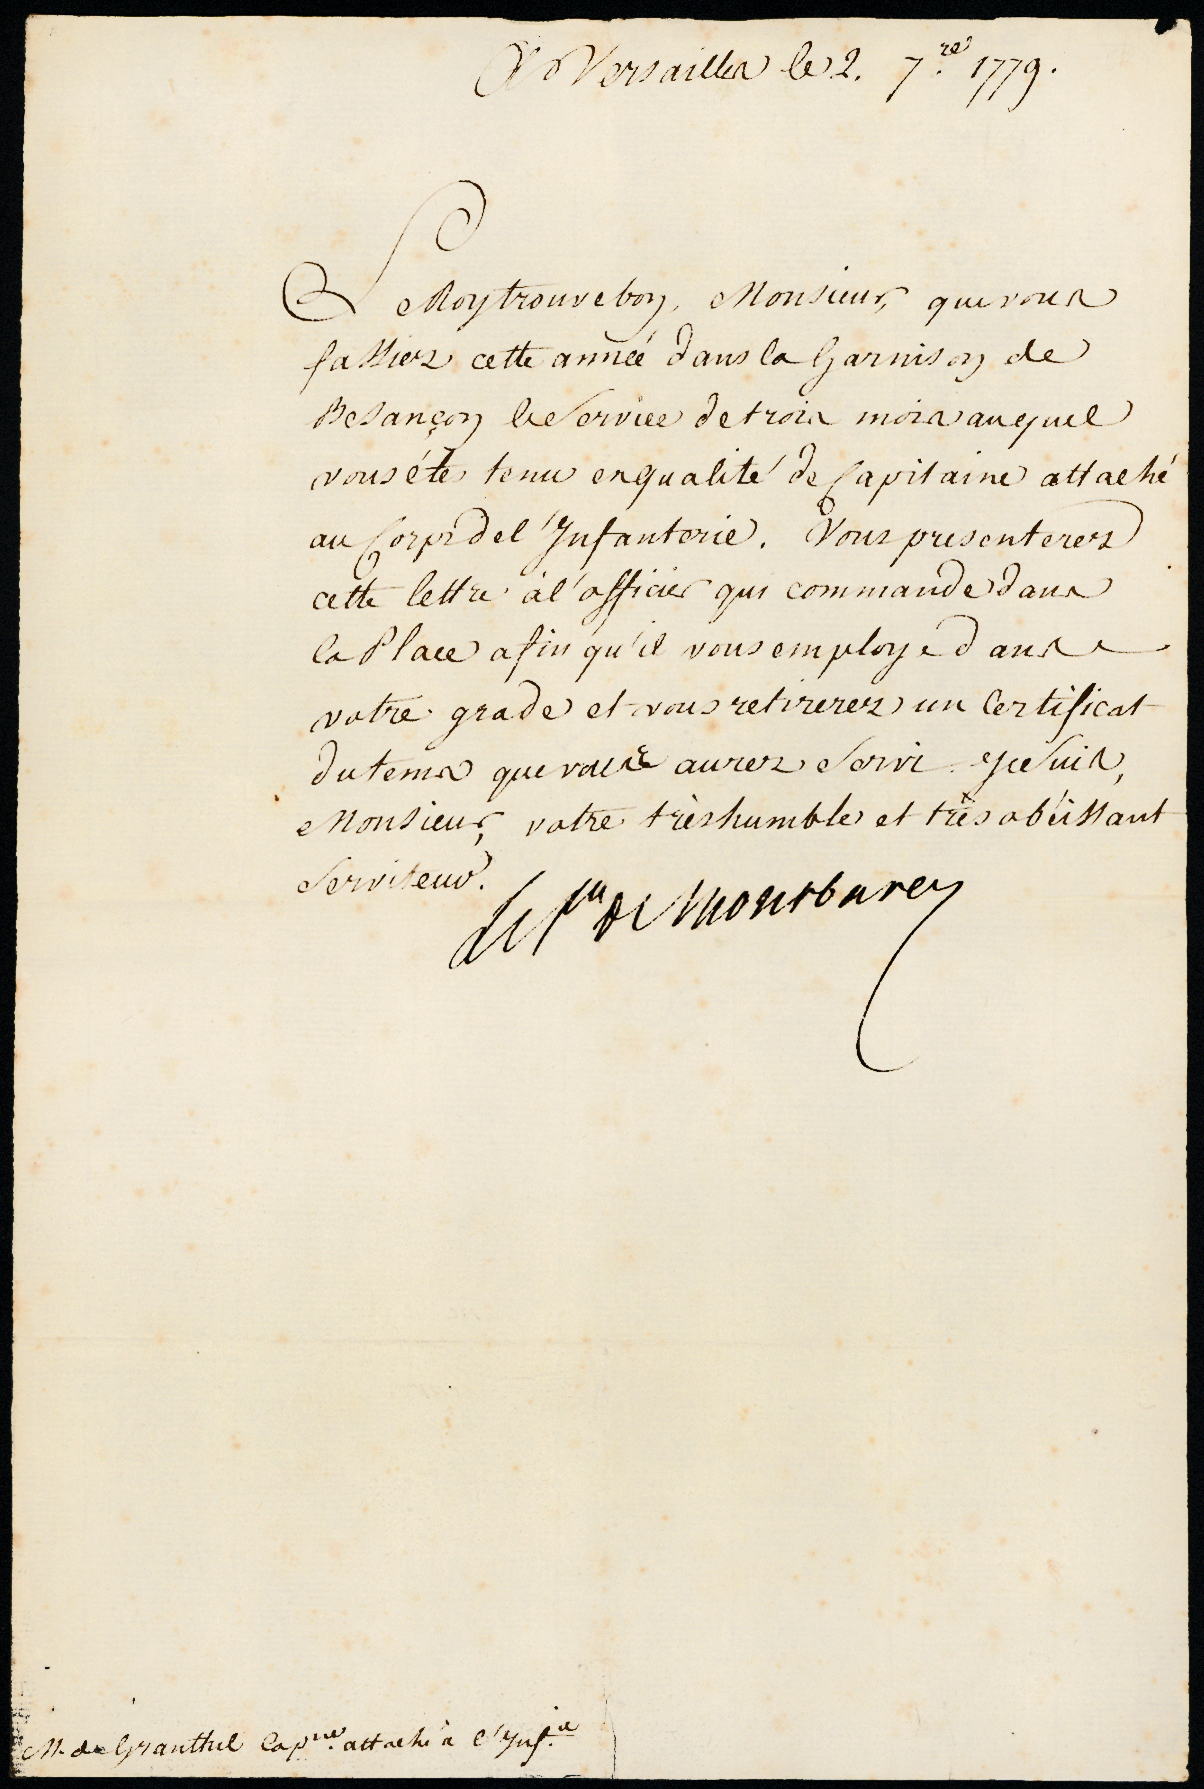 A Versailles le 2. 7.re 1779.
Le Roy trouve bon, Monsieur, que vous
fassiez cette année dans la Garnison de
Besançon le Service de trois mois auquel
vous éte tenu en qualité de Capitaine attaché
au Corps de l'Infanterie. Vous presenterez
cette lettre à l'officier qui commande dans
la Place afin qu'il vous employe dans
votre grade et vous retirerez un Certificat
du tems que vous aurez Servi. Je Suis,
Monsieur, votre très humble et très obéissant
Serviteur.
Le Pce de Montbarey
M. de Granthil Capne. attaché à l'Inf.ie